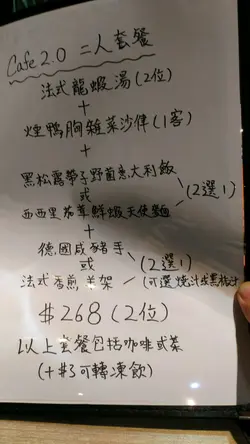 Cafe 2.0 二人套餐
法式龍蝦湯(2位)
+
煙鴨胸雜菜沙律(1客)
+
黑松露帶子野菌意大利飯
或 (2選1)
西西里蕃茄鮮蝦天使麵
+
德國咸豬手
或 (2選1)
法式香煎羊架 (可選燒汁或黑椒汁
$268(2位)
以上套餐包括咖啡或茶
(+$3可轉凍飲)